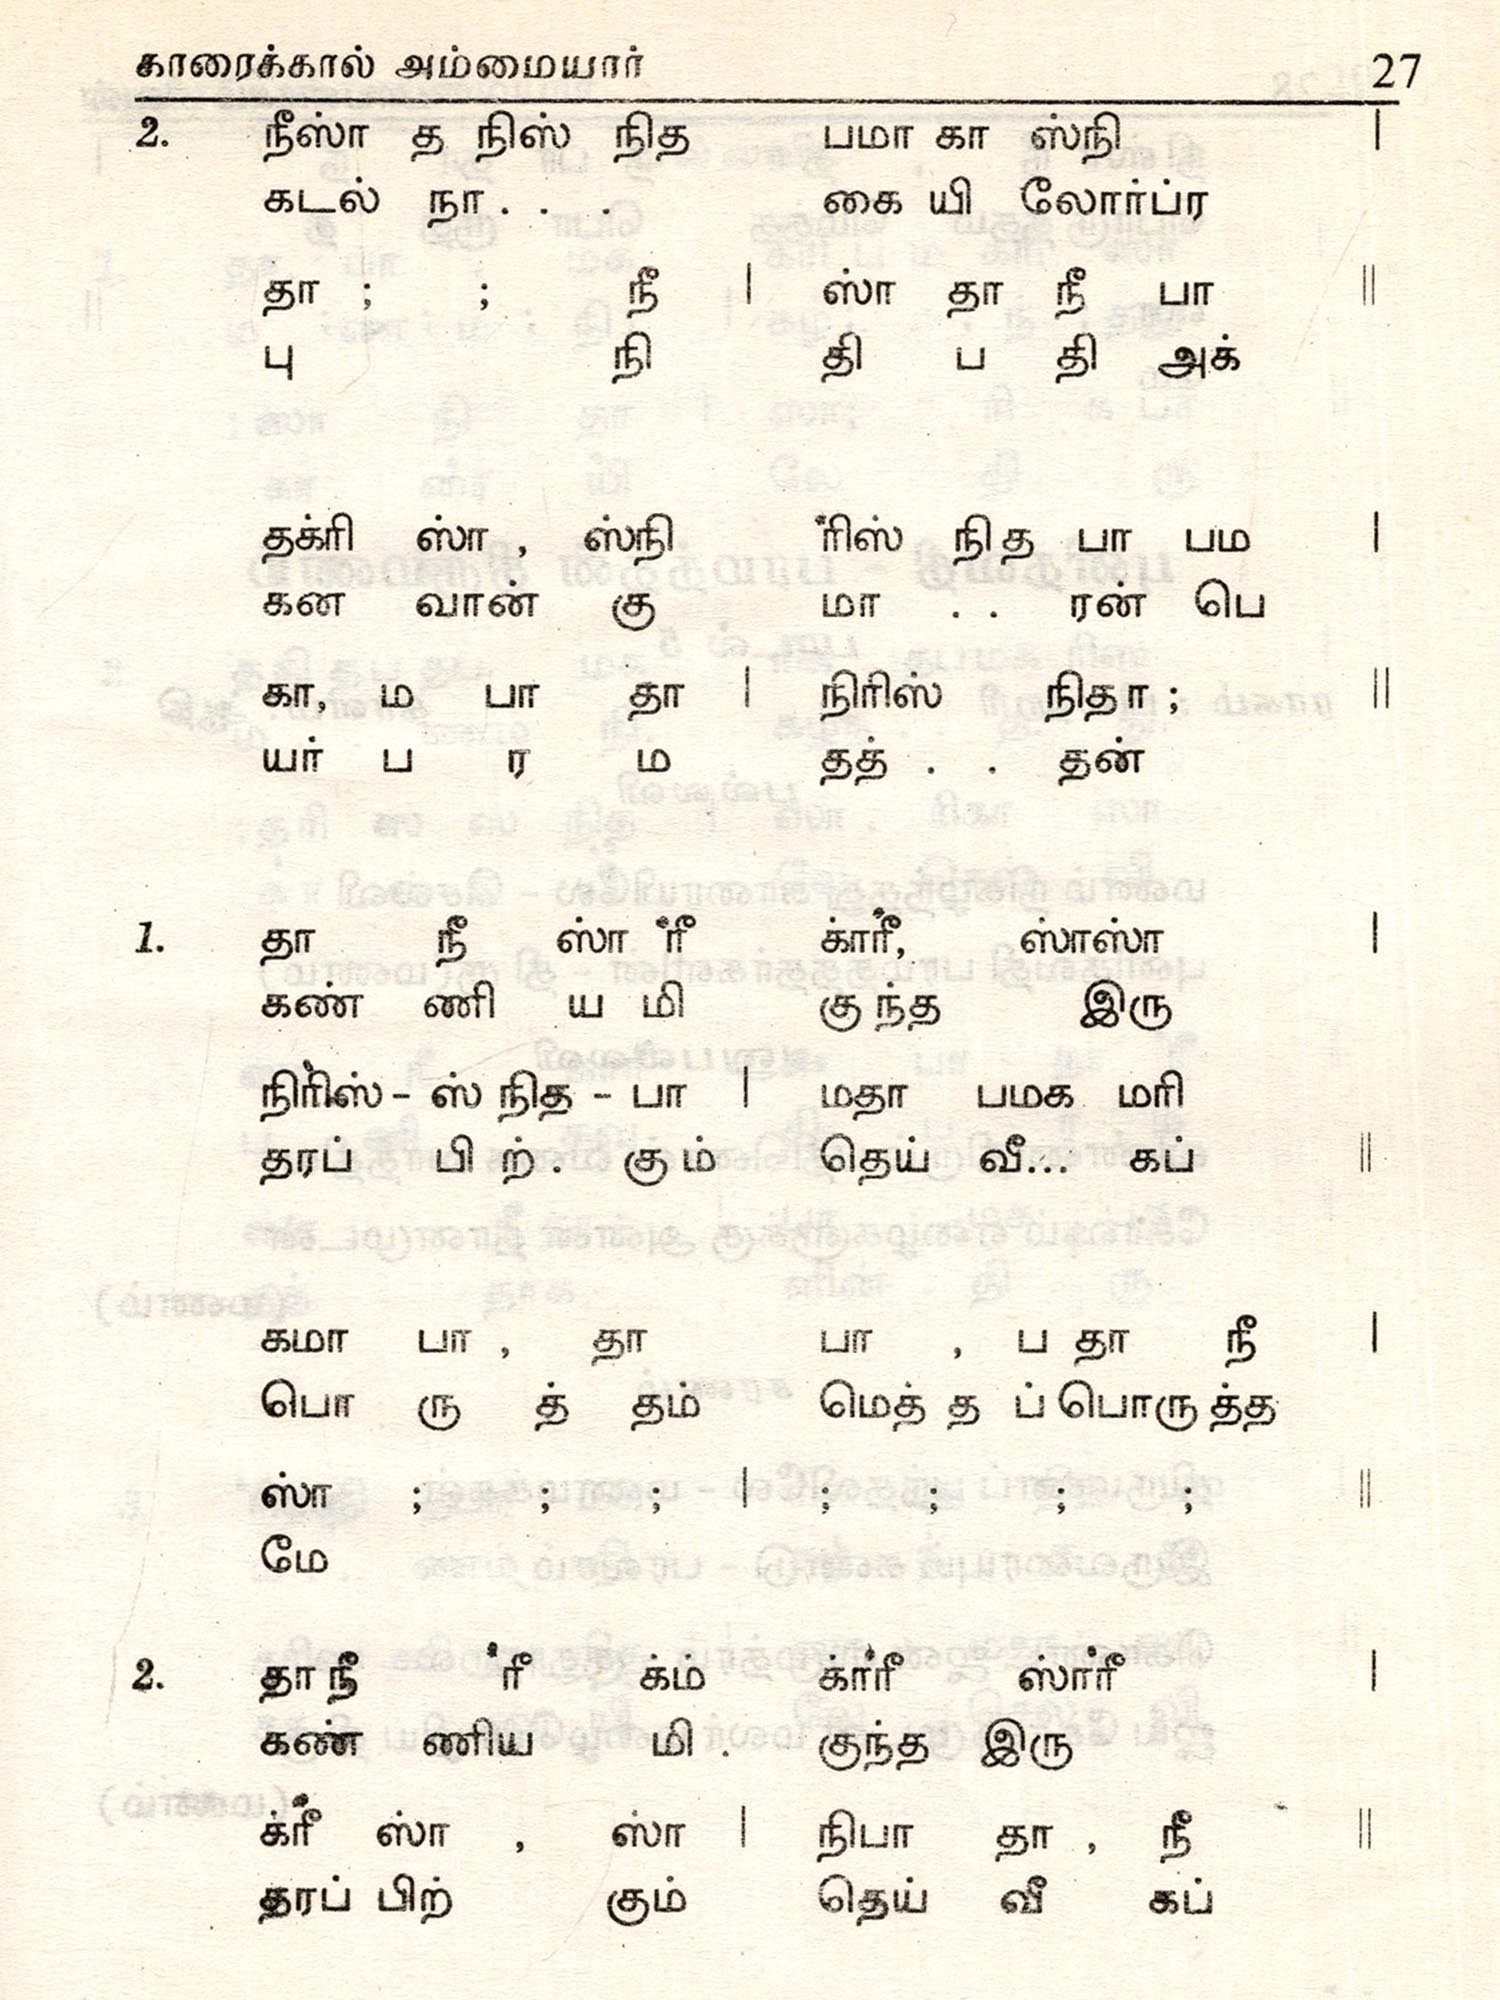 காரைக்கால் அம்மையார் 27
2. நீஸா த நிஸ் நித பமா கா ஸ்நி |
கடல் நா . . . கை யி லோர்ப்ர
தா ; ; நீ | ஸா தா நீ பா ||
பு நி தி ப தி அக்
தக்ரி ஸா , ஸ்நி ரிஸ் நித பா பம |
கன வான் கு மா . . ரன் பெ
கா, ம பா தா | நிரிஸ் நிதா ; ||
யர் ப ர ம தத் . . தன்
1. தா நீ ஸா ரீ க்ாரீ, ஸாஸா |
கண் ணி ய மி குந்த இரு
நிரிஸ் - ஸ் நித - பா | மதா பமக மரி
தரப் பி ற் . கும் தெய் வீ... கப் ||
கமா பா , தா பா , ப தா நீ |
பொ ரு த் தம் மெத் த ப் பொருத்த
ஸா ; ; ; | ; ; ; ; ||
மே
2. தா நீ ரீ க்ம் க்ாரீ ஸ்ாரீ |
கண் ணிய மி . குந்த இரு
க்ரீ ஸா , ஸா | நிபா தா , நீ ||
தரப் பிற் கும் தெய் வீ கப்